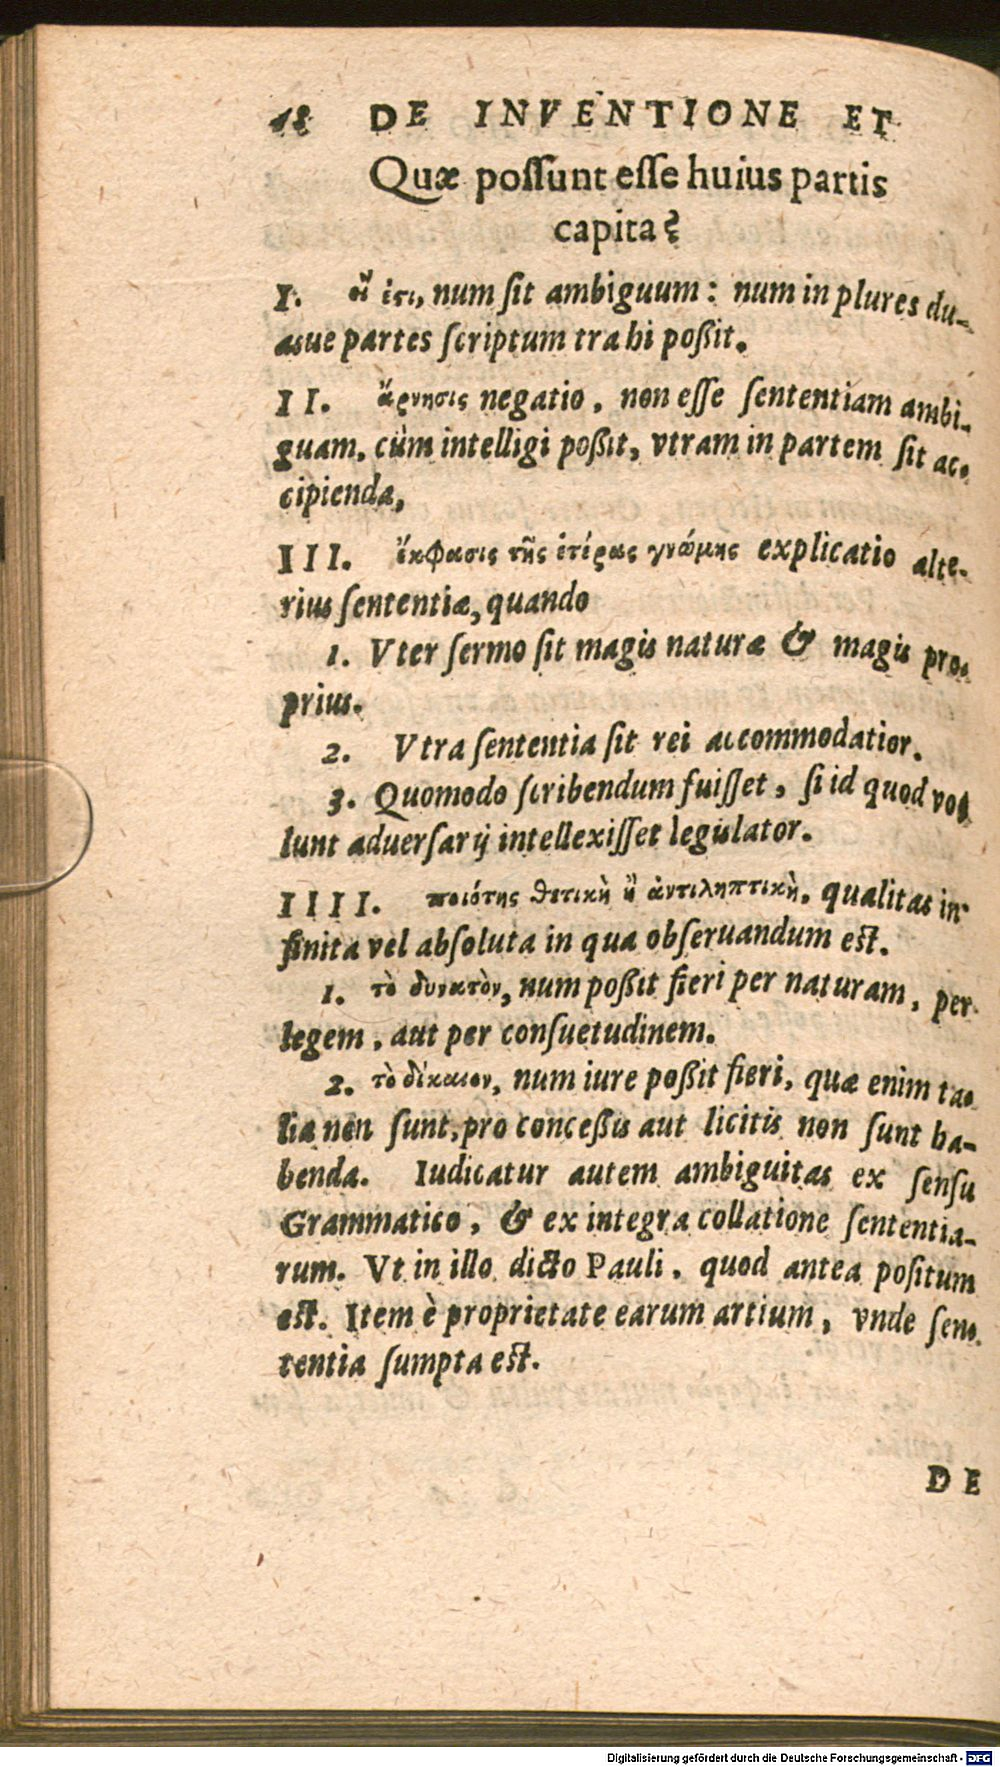 48 DE INVENTIONE ET
Quæ poſſunt eſſe huius partis
capita?
I. εἴ ἐςι, num ſit ambiguum: num in plures du-
asue partes ſcriptum trahi poßit.
II. ἄρνησις negatio, non eſſe ſententiam ambi-
guam, cùm intelligi poßit, vtram in partem ſit ac-
cipienda,
III. ἔκφασις τῆς ἑτέρας γνώμης explicatio alte-
rius ſententiæ, quando
1. Vter ſermo ſit magis naturæ & magis pro-
prius.
2. Vtra ſententia ſit rei accommodatior.
3. Quomodo ſcribendum fuiſſet, ſi id quod vo-
lunt aduerſarij intellexiſſet legislator.
IIII. ποιότης θετικὴ ἢ ἀντιληπτικὴ, qualitas in-
finita vel abſoluta in qua obſeruandum eſt.
1. τὸ δυνατὸν, num poßit fieri per naturam, per
legem, aut per conſuetudinem.
2. τὸ δίκαιον, num iure poßit fieri, quæ enim ta-
lia non ſunt, pro conceßis aut licitis non ſunt ha-
benda. Iudicatur autem ambiguitas ex ſenſu
Grammatico, & ex integra collatione ſententia-
rum. Vt in illo dicto Pauli, quod antea poſitum
eſt. Item è proprietate earum artium, vnde ſen-
tentia ſumpta eſt.
DE
Digitalisierung gefördert durch die Deutsche Forschungsgemeinschaft - DFG